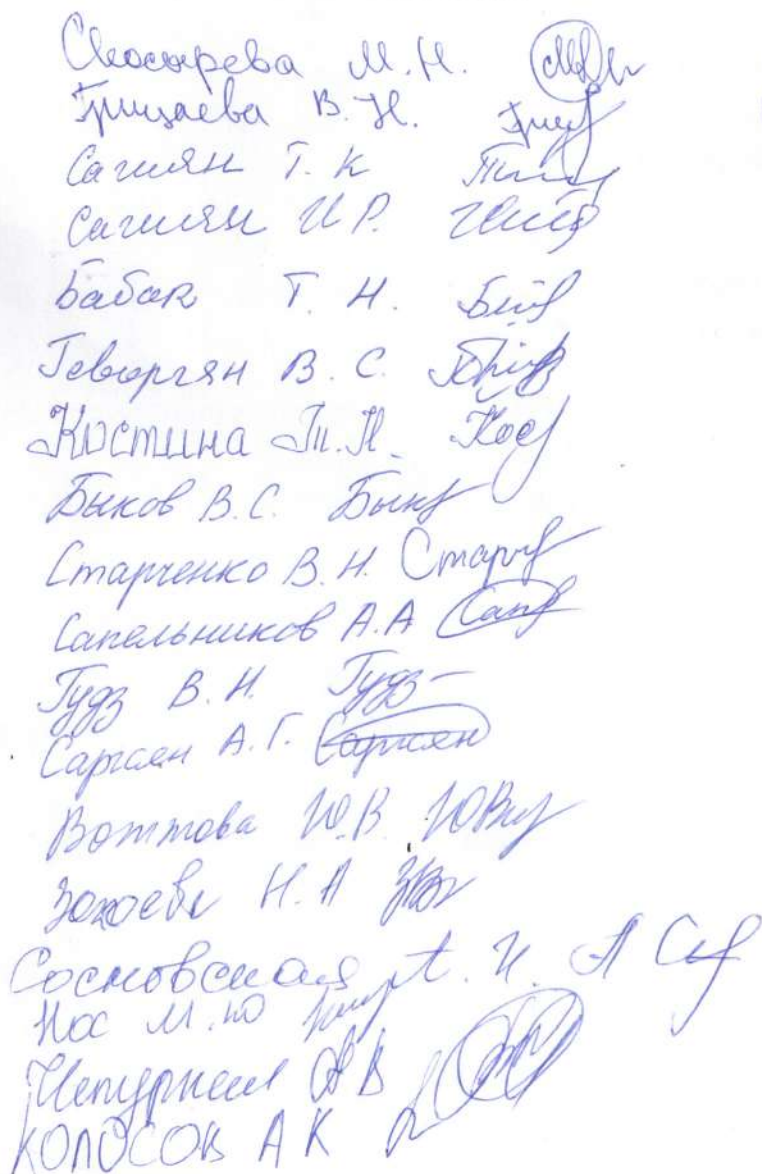 Скосырева М.Н.
Грицаева В.Н.
Сагиян Т.К
Сагиян И Р.
Бабак Т. Н.
Геворгян В. С.
Костина Т.П. Кос
Быков В.С. Бык
Старченко В.Н. Старч
Сапельников А.А Сап
Гудз В.Н. Гудз
Саргсян А.Г. Саргсян
Воттова Ю.В. ЮВ
Н.А
Сосновская А. И.
Нос М.Ю
А В
КОЛОСОВ А К